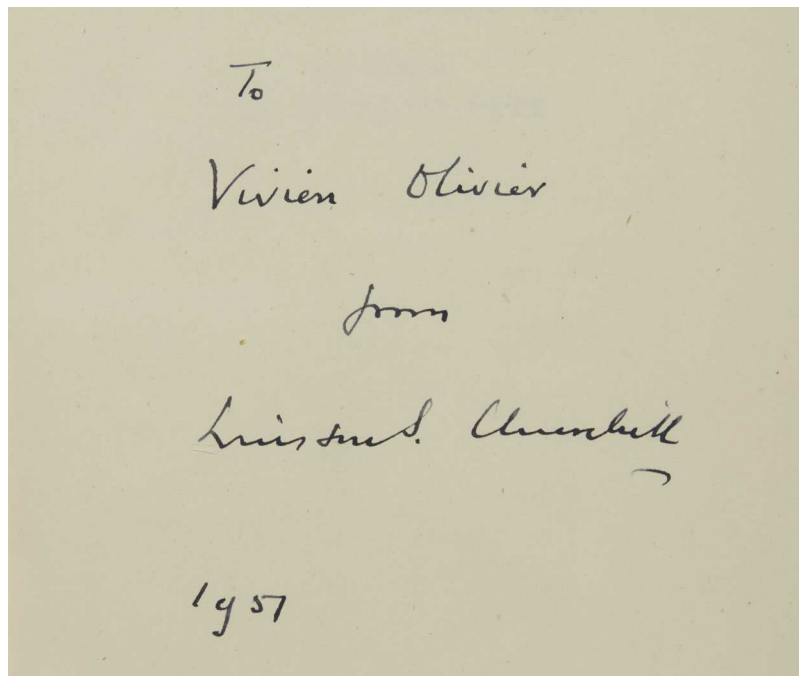 To
Vivien Olivier
from
Winston S. Churchill
1951